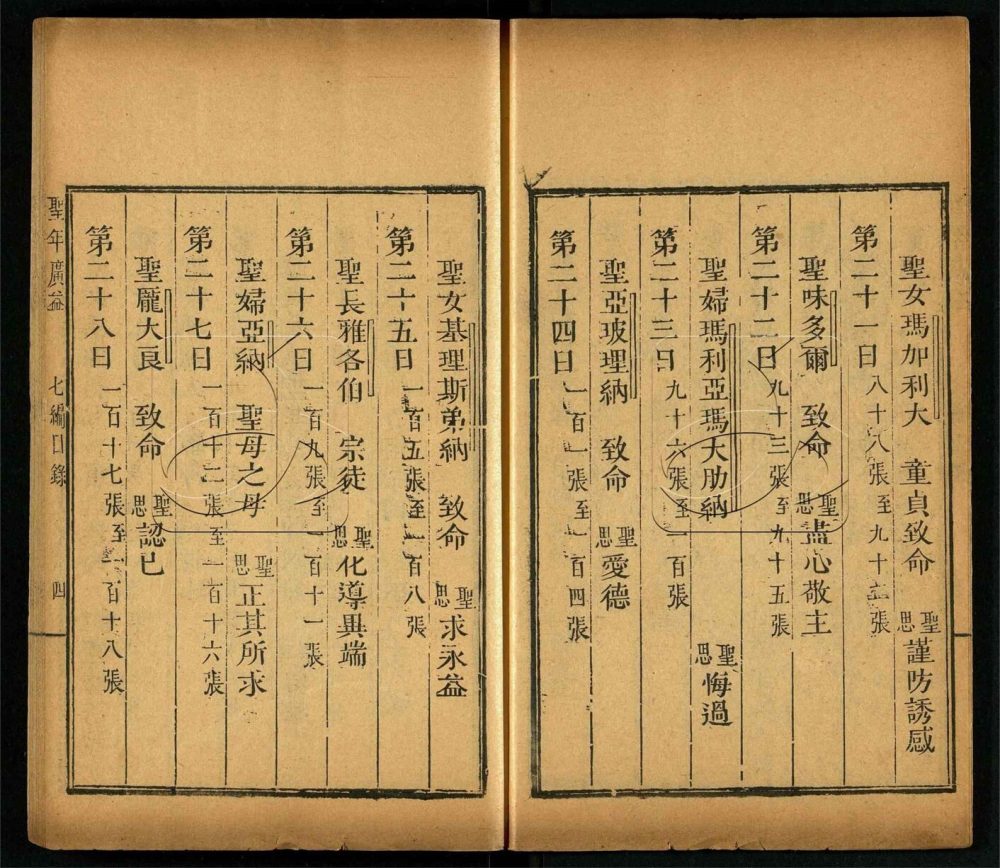 聖女瑪加利大 童貞致命 聖思謹防誘感
第二十一日 八十八張至九十二張
聖味多爾 致命 聖思盡心敬主
第二十二日 九十三張至九十五張
聖婦瑪利亞瑪大肋納 聖思悔過
第二十三日 九十六張至一百張
聖亞玻理納 致命 聖思愛德
第二十四日 一百一張至一百四張
聖女基理斯弟納 致命 聖思求永益
第二十五日 一百五張至一百八張
聖長雅各伯 宗徒 聖思化導異端
第二十六日 一百九張至一百十一張
聖婦亞納 聖母之母 聖思正其所求
第二十七日 一百十二張至一百十六張
聖龎大良 致命 聖思認己
第二十八日 一百十七張至一百十八張
聖年廣益 七編目錄 四